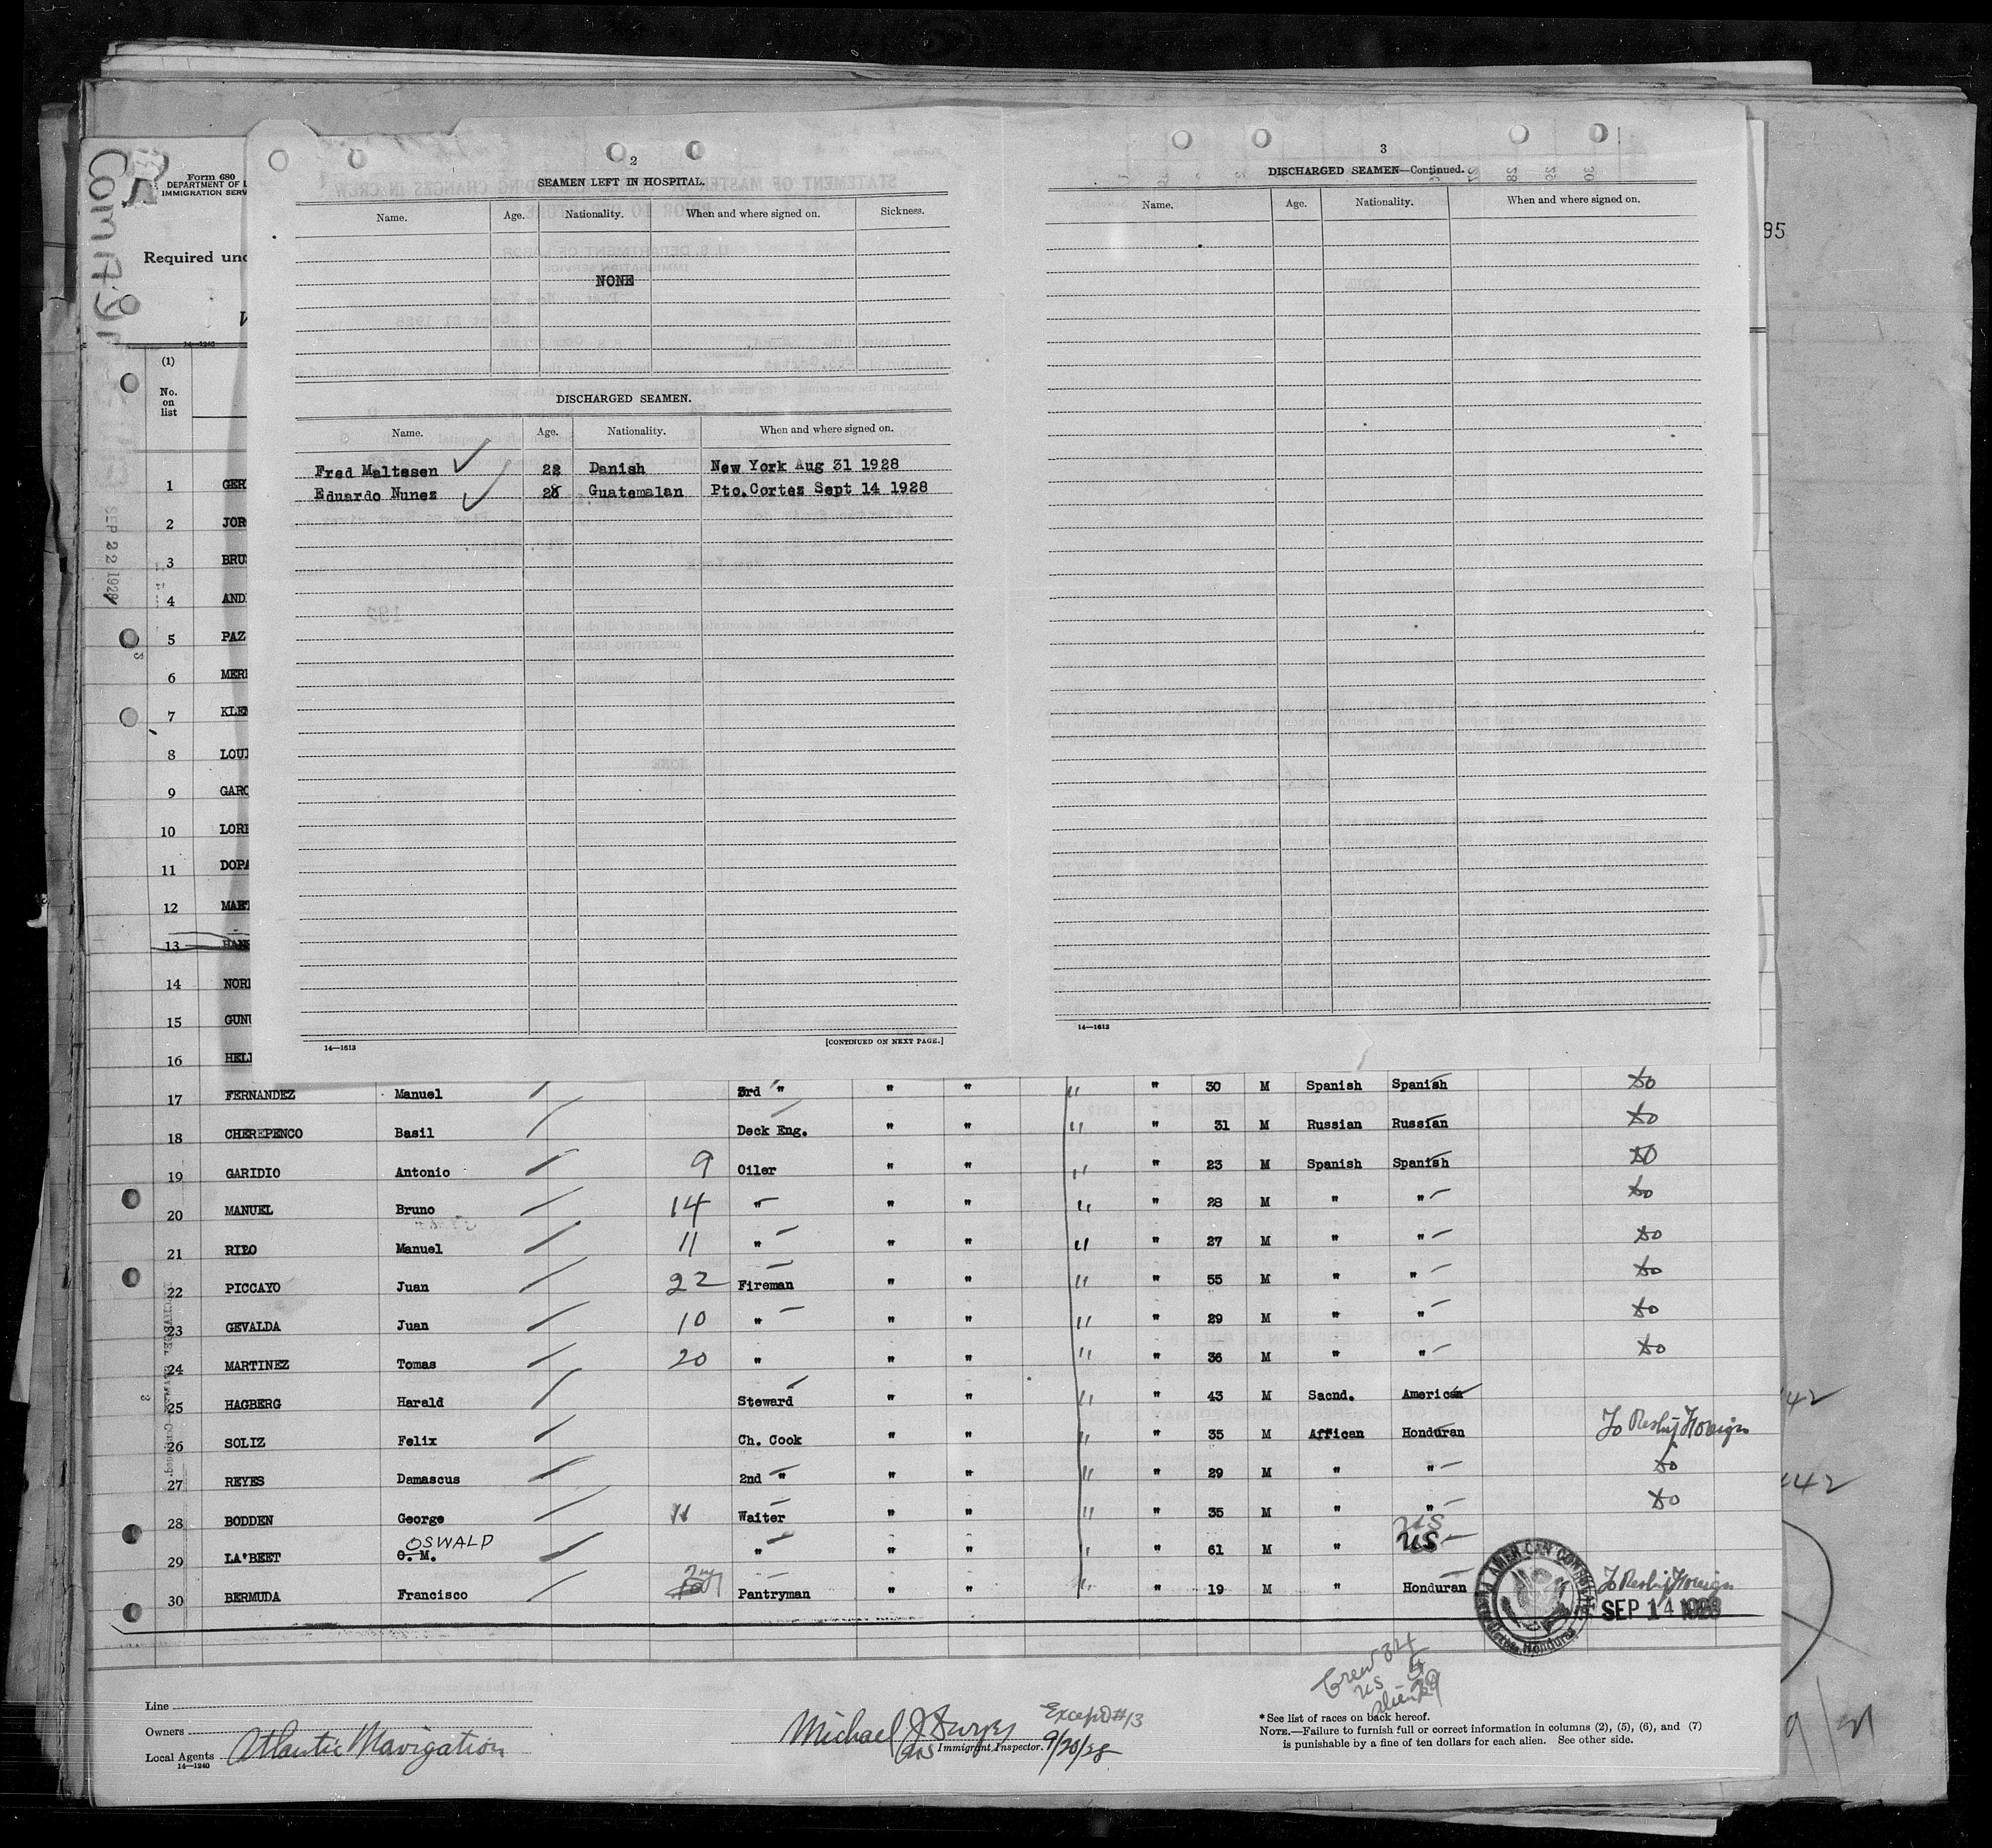 2
SEAMEN LEFT IN HOSPITAL.
Name. Age. Nationality. When and where signed on. Sickness.
NONE
DISCHARGED SEAMEN.
Name. Age. Nationality. When and where signed on.
Fred Maltesen 22 Danish New York Aug 31 1928
Eduardo Nunez 28 Guatemalan Pto.Cortez Sept 14 1928
14—1613
[CONTINUED ON NEXT PAGE.]
3
DISCHARGED SEAMEN—Continued.
Name. Age. Nationality. When and where signed on.
14—1613
Form 680
DEPARTMENT OF L
IMMIGRATION SERV
Required und
14—1240
(1)
No. on list
SEP 22 1928
95
1 GER
2 JOR
3 BRU
4 AND
5 PAZ
6 MER
7 KLE
8 LOU
9 GARC
10 LORE
11 DOPA
12 MART
13 HAN
14 NOR
15 GUNU
16 HEL
17 FERNANDEZ Manuel 3rd " " " " " 30 M Spanish Spanish do
18 CHEREPENCO Basil Deck Eng. " " " " 31 M Russian Russian do
19 GARIDIO Antonio 9 Oiler " " " " 23 M Spanish Spanish do
20 MANUEL Bruno 14 " " " " " 28 M " " do
21 RIPO Manuel 11 " " " " " 27 M " " do
22 PICCAYO Juan 22 Fireman " " " " 55 M " " do
23 GEVALDA Juan 10 " " " " " 29 M " " do
24 MARTINEZ Tomas 20 " " " " " 36 M " " do
25 HAGBERG Harald Steward " " " " 43 M Sacnd. American
26 SOLIZ Felix Ch. Cook " " " " 35 M African Honduran To Reship Foreign
27 REYES Damascus 2nd " " " " " 29 M " " do
28 BODDEN George 11 Waiter " " " " 35 M " " do
29 LA'BEET O. M. OSWALD " " " " " 61 M " US
30 BERMUDA Francisco Pantryman " " " " 19 M " Honduran To Reship Foreign
SEP 14 1928
Crew 34
US 5
Alien 29
Line
Owners
Local Agents Atlantic Navigation
14—1240
Immigrant Inspector. 9/20/28
Except #13
*See list of races on back hereof.
NOTE.—Failure to furnish full or correct information in columns (2), (5), (6), and (7)
is punishable by a fine of ten dollars for each alien. See other side.